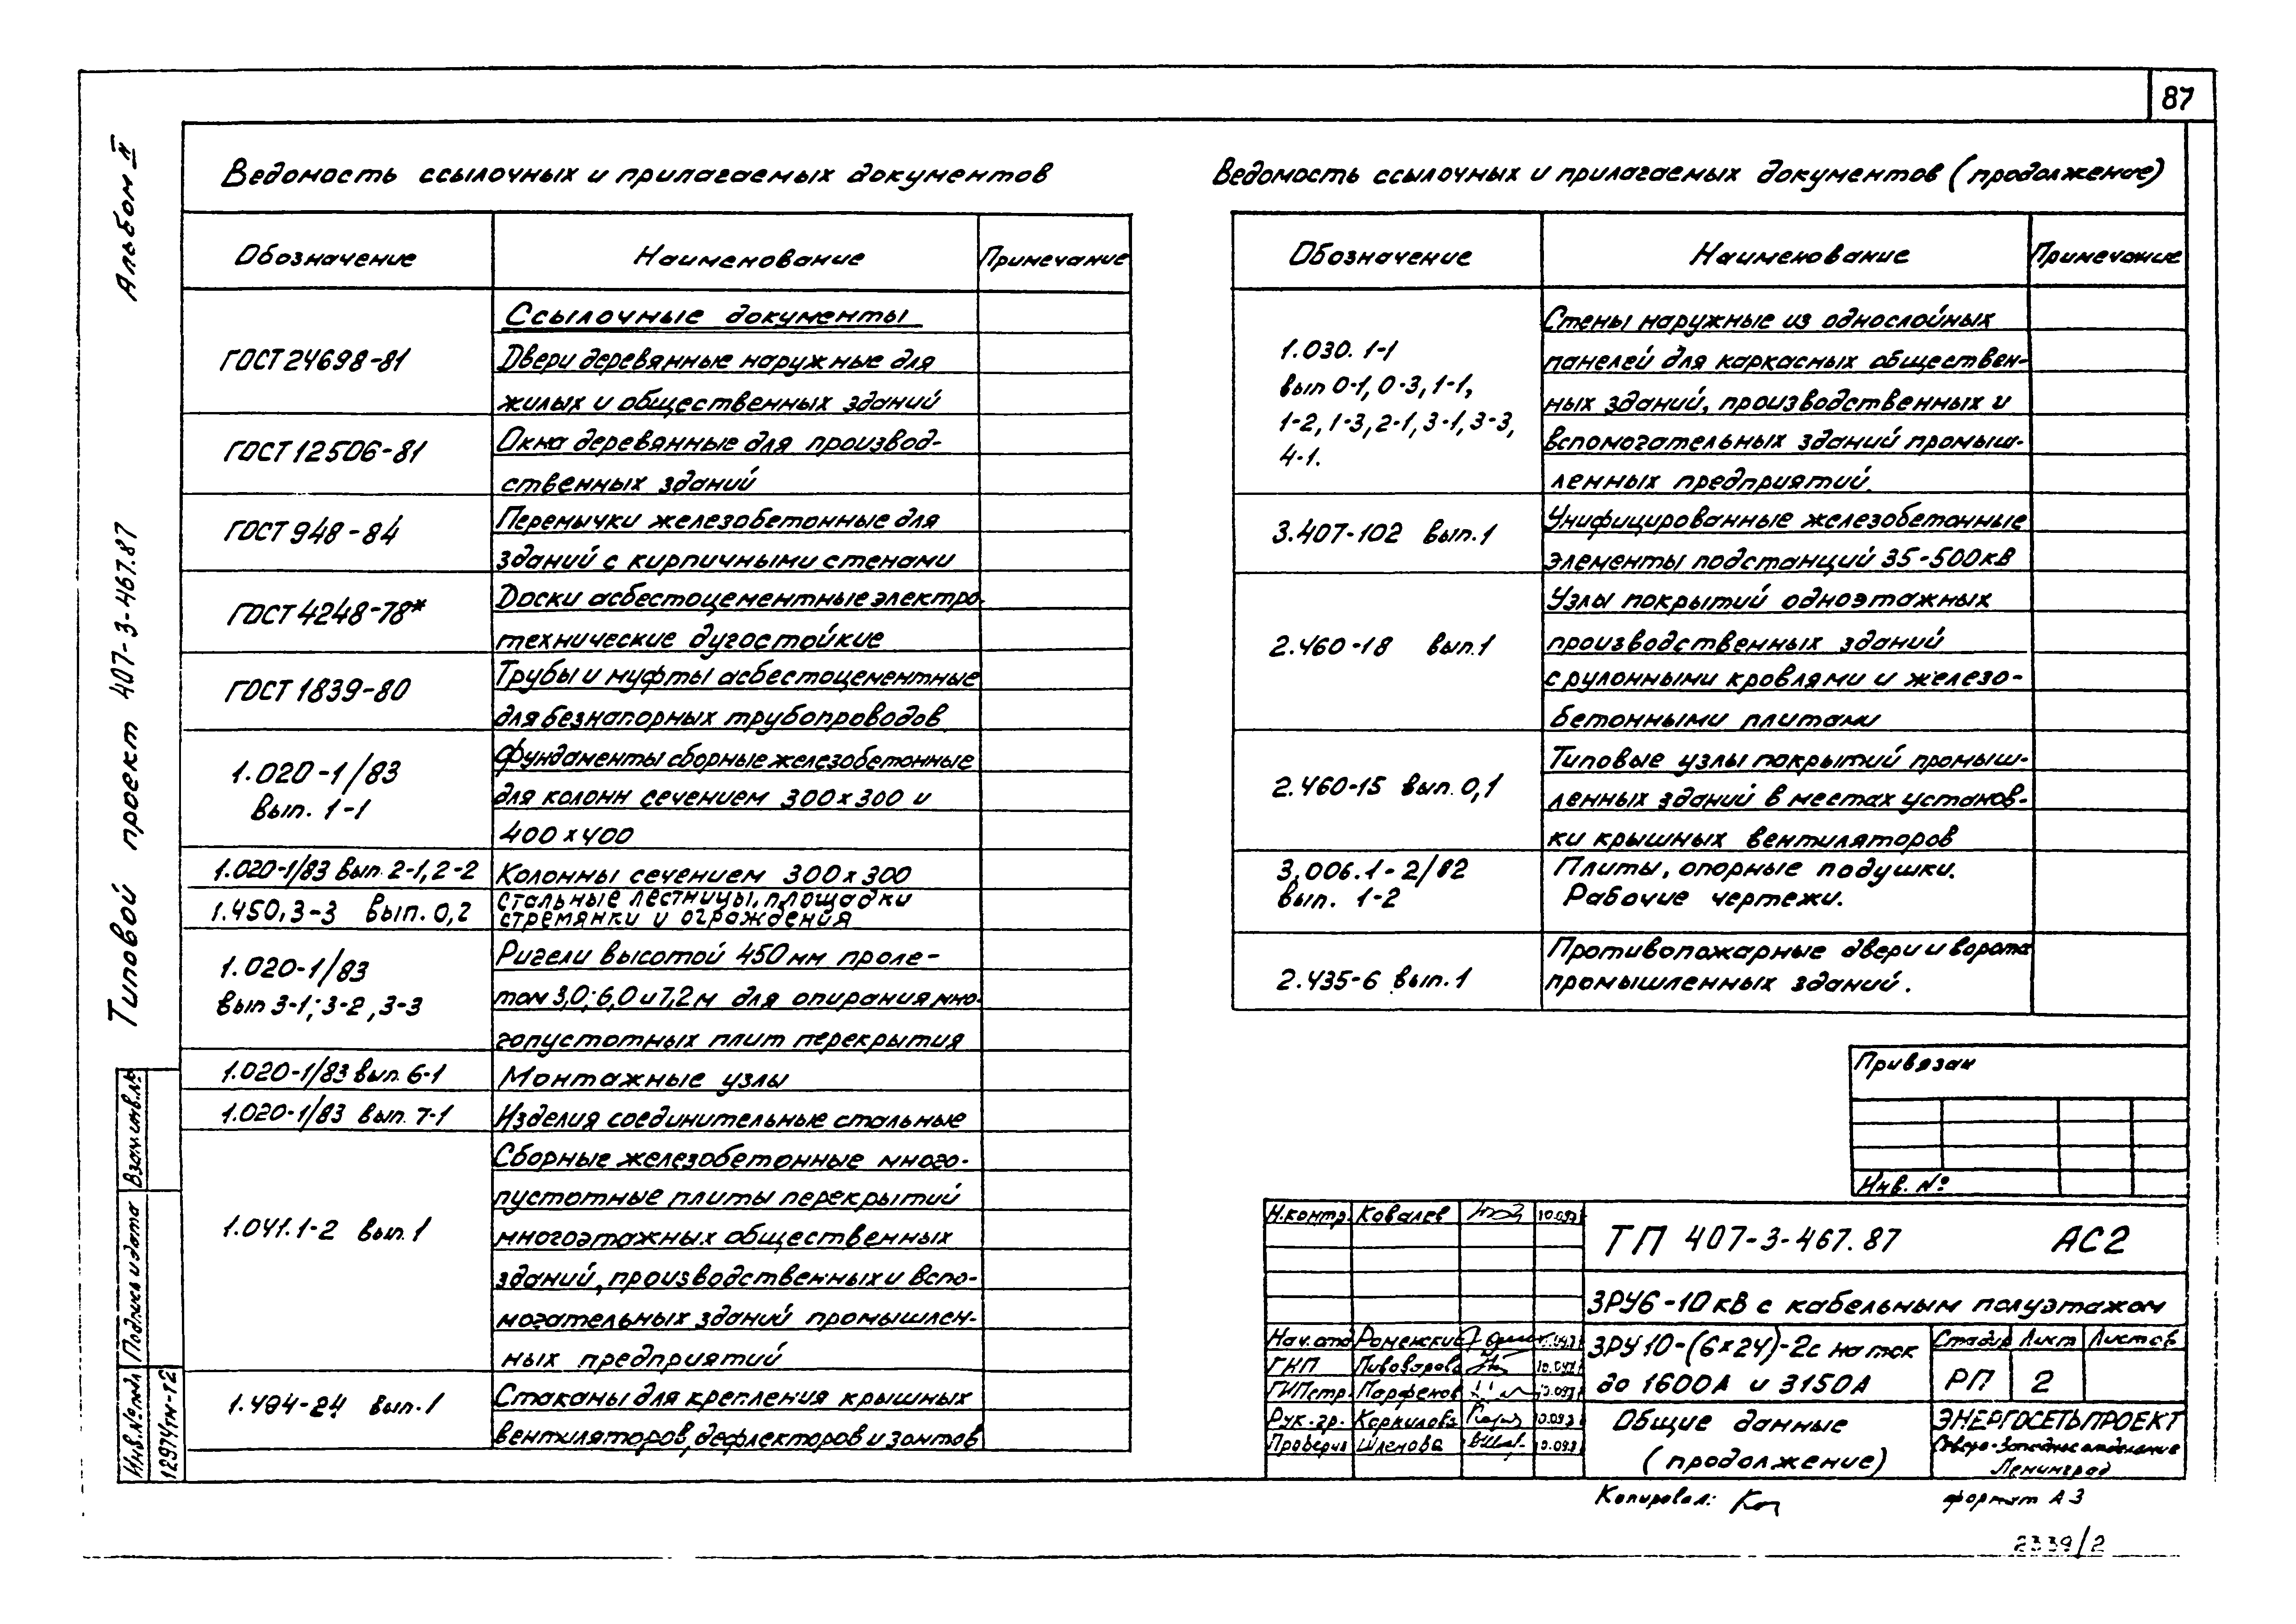 87
Альбом II
Типовой проект 407-3-467.87
Ведомость ссылочных и прилагаемых документов
Обозначение Наименование Примечание
Ссылочные документы
ГОСТ 24698-81 Двери деревянные наружные для
жилых и общественных зданий
ГОСТ 12506-81 Окна деревянные для производ-
ственных зданий
ГОСТ 948-84 Перемычки железобетонные для
зданий с кирпичными стенами
ГОСТ 4248-78* Доски асбестоцементные электро-
технические дугостойкие
ГОСТ 1839-80 Трубы и муфты асбестоцементные
для безнапорных трубопроводов
1.020-1/83 Фундаменты сборные железобетонные
вып. 1-1 для колонн сечением 300х300 и
400х400
1.020-1/83 вып. 2-1, 2-2 Колонны сечением 300х300
1.450,3-3 вып. 0,2 стальные лестницы, площадки
стремянки и ограждения
1.020-1/83 Ригели высотой 450мм проле-
вып 3-1; 3-2, 3-3 том 3,0; 6,0 и 7,2м для опирания мно-
гопустотных плит перекрытия
1.020-1/83 вып. 6-1 Монтажные узлы
1.020-1/83 вып. 7-1 Изделия соединительные стальные
Сборные железобетонные много-
пустотные плиты перекрытий
1.041.1-2 вып. 1 многоэтажных общественных
зданий, производственных и вспо-
могательных зданий промышлен-
ных предприятий
1.494-24 вып. 1 Стаканы для крепления крышных
вентиляторов, дефлекторов и зонтов
Ведомость ссылочных и прилагаемых документов (продолжение)
Обозначение Наименование Примечание
Стены наружные из однослойных
1.030. 1-1 панелей для каркасных обществен-
вып 0-1, 0-3, 1-1, ных зданий, производственных и
1-2, 1-3, 2-1, 3-1, 3-3, вспомогательных зданий промыш-
4-1. ленных предприятий.
3.407-102 вып. 1 Унифицированные железобетонные
элементы подстанций 35-500кВ
Узлы покрытий одноэтажных
2.460-18 вып. 1 производственных зданий
с рулонными кровлями и железо-
бетонными плитами
Типовые узлы покрытий промыш-
2.460-15 вып. 0,1 ленных зданий в местах установ-
ки крышных вентиляторов
3.006.1-2/82 Плиты, опорные подушки.
вып. 1-2 Рабочие чертежи.
Противопожарные двери и ворота
2.435-6 вып. 1 промышленных зданий.
Привязан
Инв. №
Н.контр. Ковалев
ТП 407-3-467.87 АС2
ЗРУ6-10кВ с кабельным полуэтажом
Нач.отд Роменский
ГИП Пивоварова
ГИПстр. Парфенов
Рук. гр. Коркилова
Проверил Шленова
ЗРУ10-(6х24)-2с на ток
до 1600А и 3150А
Стадия Лист Листов
РП 2
Общие данные
(продолжение)
ЭНЕРГОСЕТЬПРОЕКТ
Северо-Западное отделение
Ленинград
Копировал:
формат А3
2339/2
Взам.инв.№
Подпись и дата
Инв.№подл
12974тм-т2